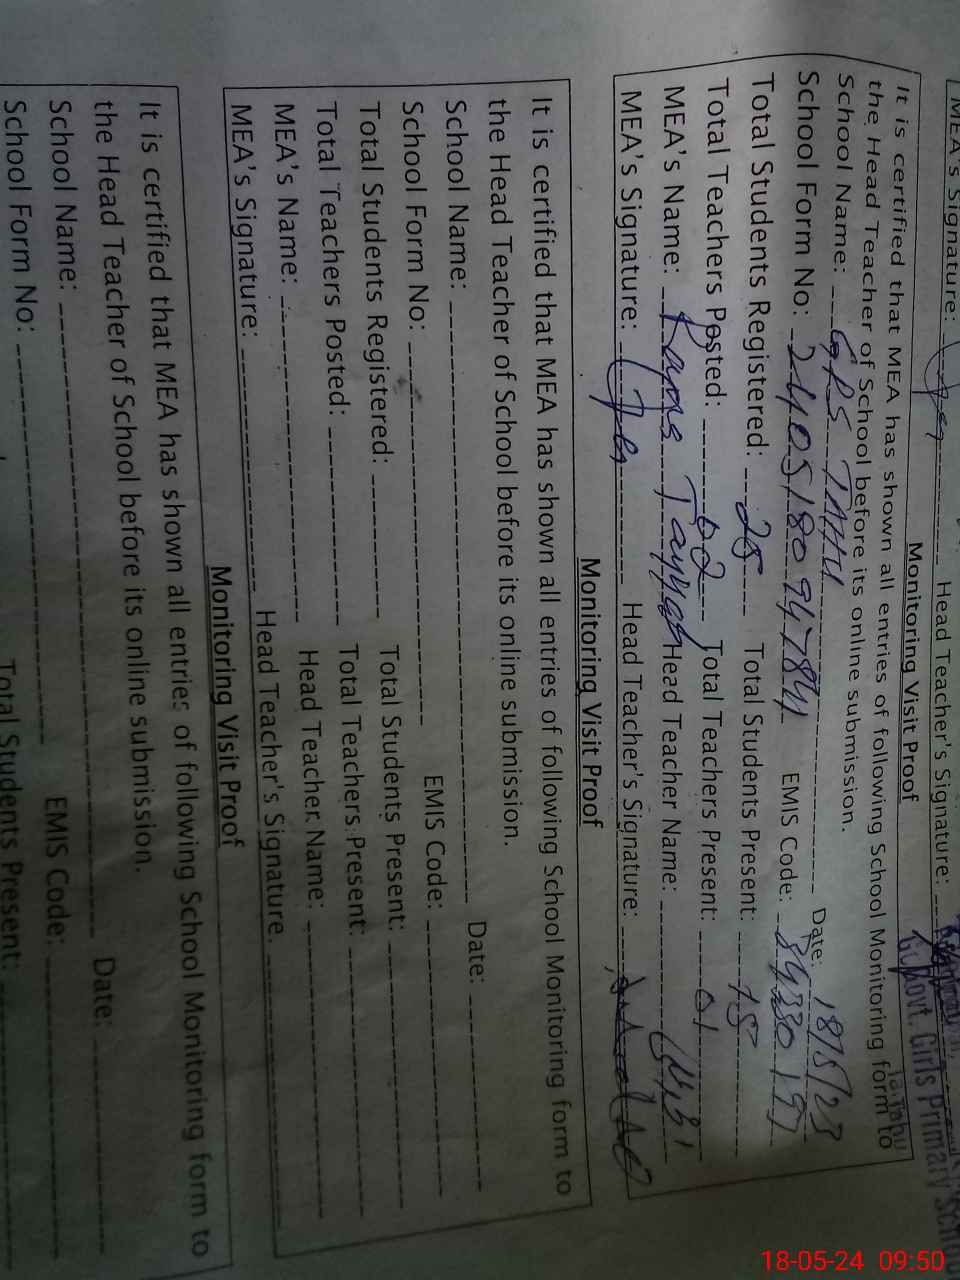 MEA's Signature: Head Teacher's Signature:
Govt. Girls Primary School
Monitoring Visit Proof
It is certified that MEA has shown all entries of following School Monitoring form to
the Head Teacher of School before its online submission.
School Name: GPS Date: 18/5/23
School Form No: EMIS Code:
Total Students Registered: 25 Total Students Present: 15
Total Teachers Posted: 02 Total Teachers Present: 01
MEA's Name: Tayyab Head Teacher Name:
MEA's Signature: Head Teacher's Signature:
Monitoring Visit Proof
It is certified that MEA has shown all entries of following School Monitoring form to
the Head Teacher of School before its online submission.
School Name: Date:
School Form No: EMIS Code:
Total Students Registered: Total Students Present:
Total Teachers Posted: Total Teachers Present:
MEA's Name: Head Teacher Name:
MEA's Signature: Head Teacher's Signature.
Monitoring Visit Proof
It is certified that MEA has shown all entries of following School Monitoring form to
the Head Teacher of School before its online submission.
School Name: Date:
School Form No: EMIS Code:
Total Students Present:
18-05-24 09:50